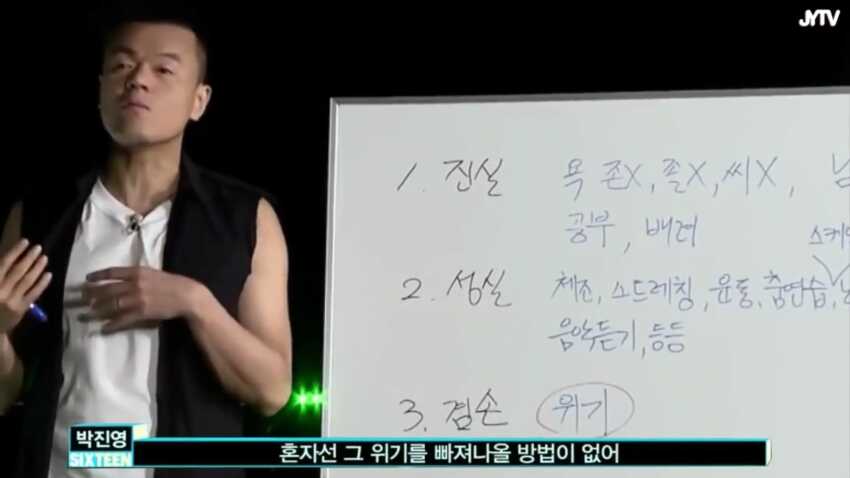 JYTV
1. 진실 욕 존X, 졸X, 씨X,
공부, 배려
2. 성실 체조, 스트레칭, 운동, 춤연습,
음악듣기, 등등
3. 겸손 위기
박진영
SIXTEEN
혼자선 그 위기를 빠져나올 방법이 없어